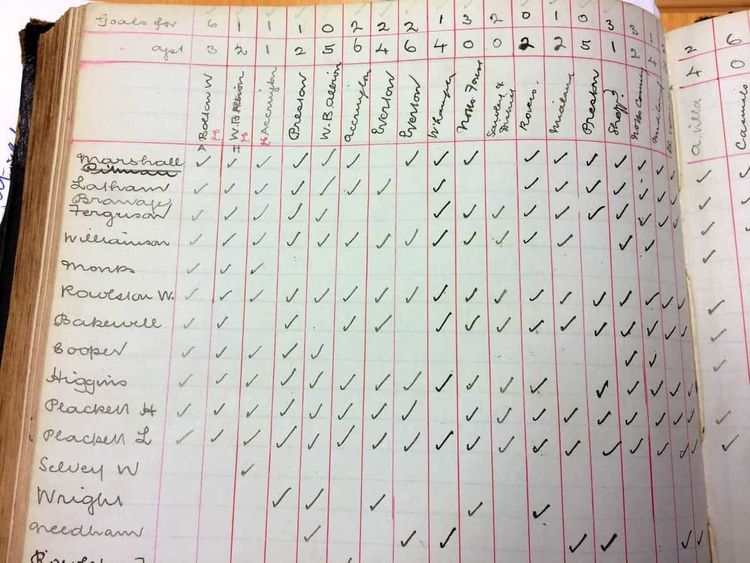 Goals for 6 1 1 1 0 2 2 2 1 3 2 0 1 0 3
" agst 3 2 1 2 5 6 4 6 4 0 0 2 2 5 1 4 0
A Bolton W
H W. B Albion
H Accrington
Preston
W. B Albion
Accrington
Everton
Everton
W. Hampton
Notts Forest
Survey & District
Rovers
Midland
Preston
Staff?
Notts County
A. Villa
Marshall
Pitman
Latham
Ferguson
Williamson
Monks
Rowlston W.
Bakewell
Cooper
Higgins
Plackett H
Plackett L
Selvey W
Wright
Needham